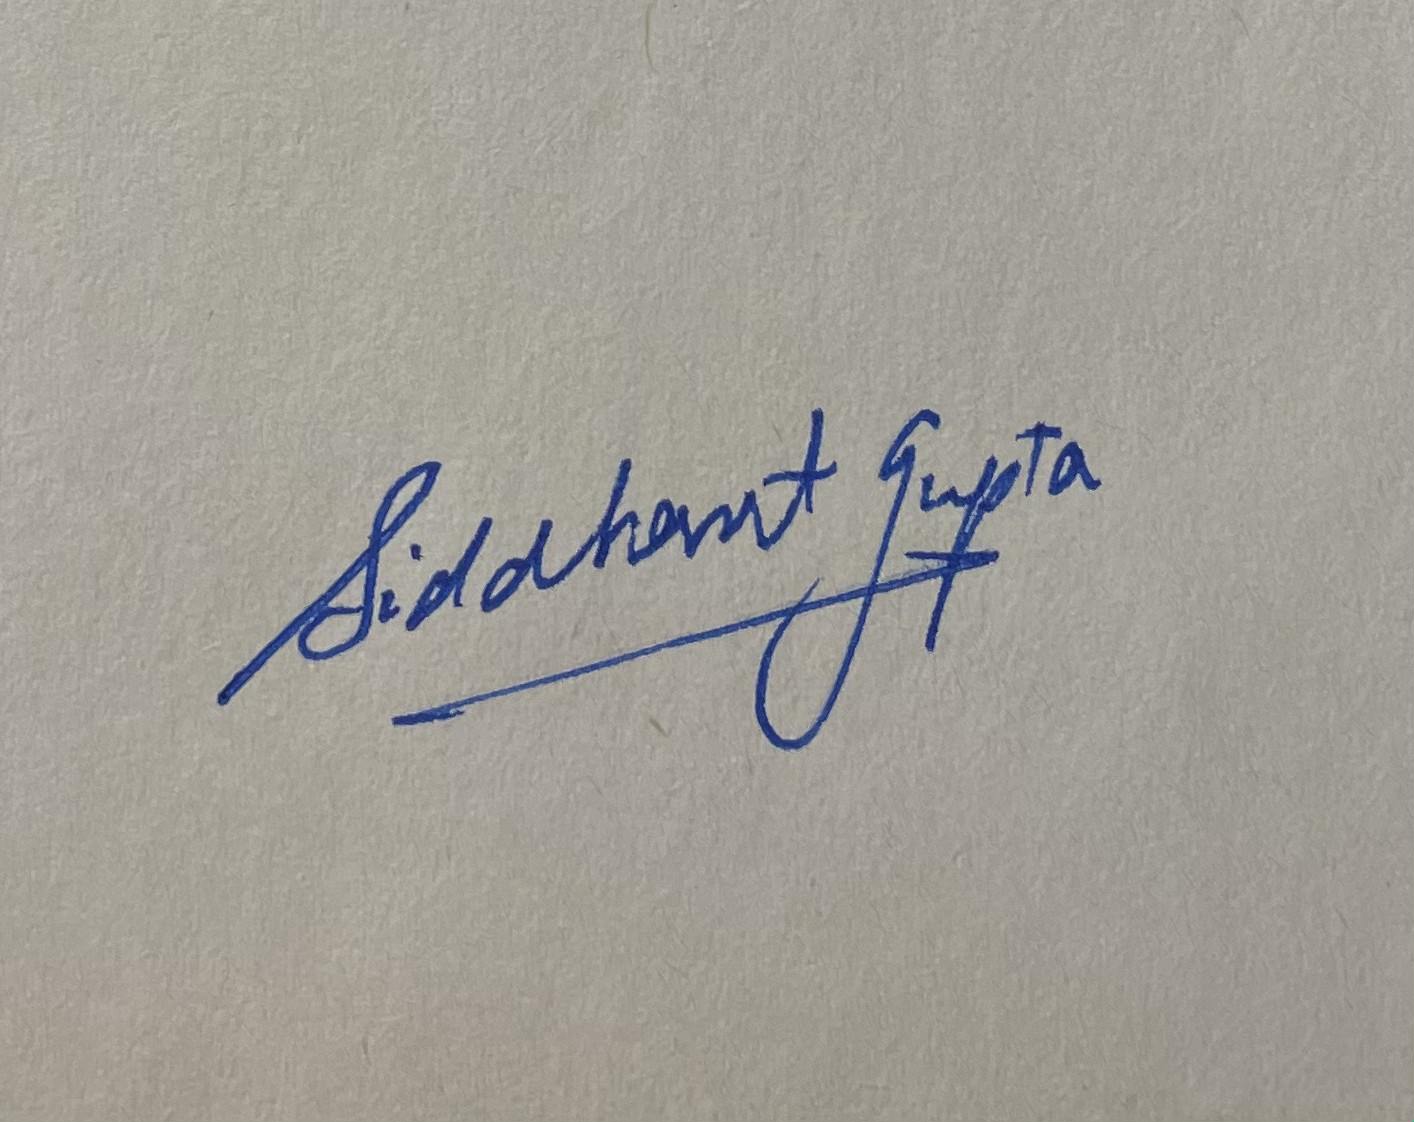 Siddhant Gupta